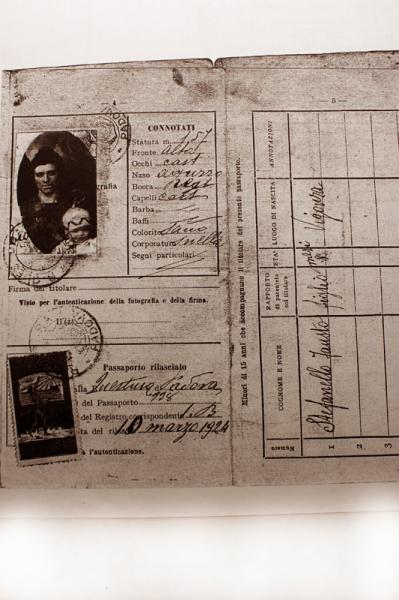 4
CONNOTATI
Statura m. 1,57
Fronte alta
Occhi cast
Naso
Bocca reg
Capelli cast
Barba
Baffi
Colorito sano
Corporatura snella
Segni particolari
Firma del titolare
Visto per l'autenticazione della fotografia e della firma.
PADOVA
Passaporto rilasciato
Questura Padova
del Passaporto 998
del Registro corrispondente
10 marzo 1924
a l'autenticazione.
5
Minori di 15 anni che accompagnano il titolare del presente passaporto.
Numero
COGNOME E NOME
RAPPORTO di parentela col titolare
ETÀ
LUOGO DI NASCITA
ANNOTAZIONI
1 Stefanello Fausto figlio mesi
2
3